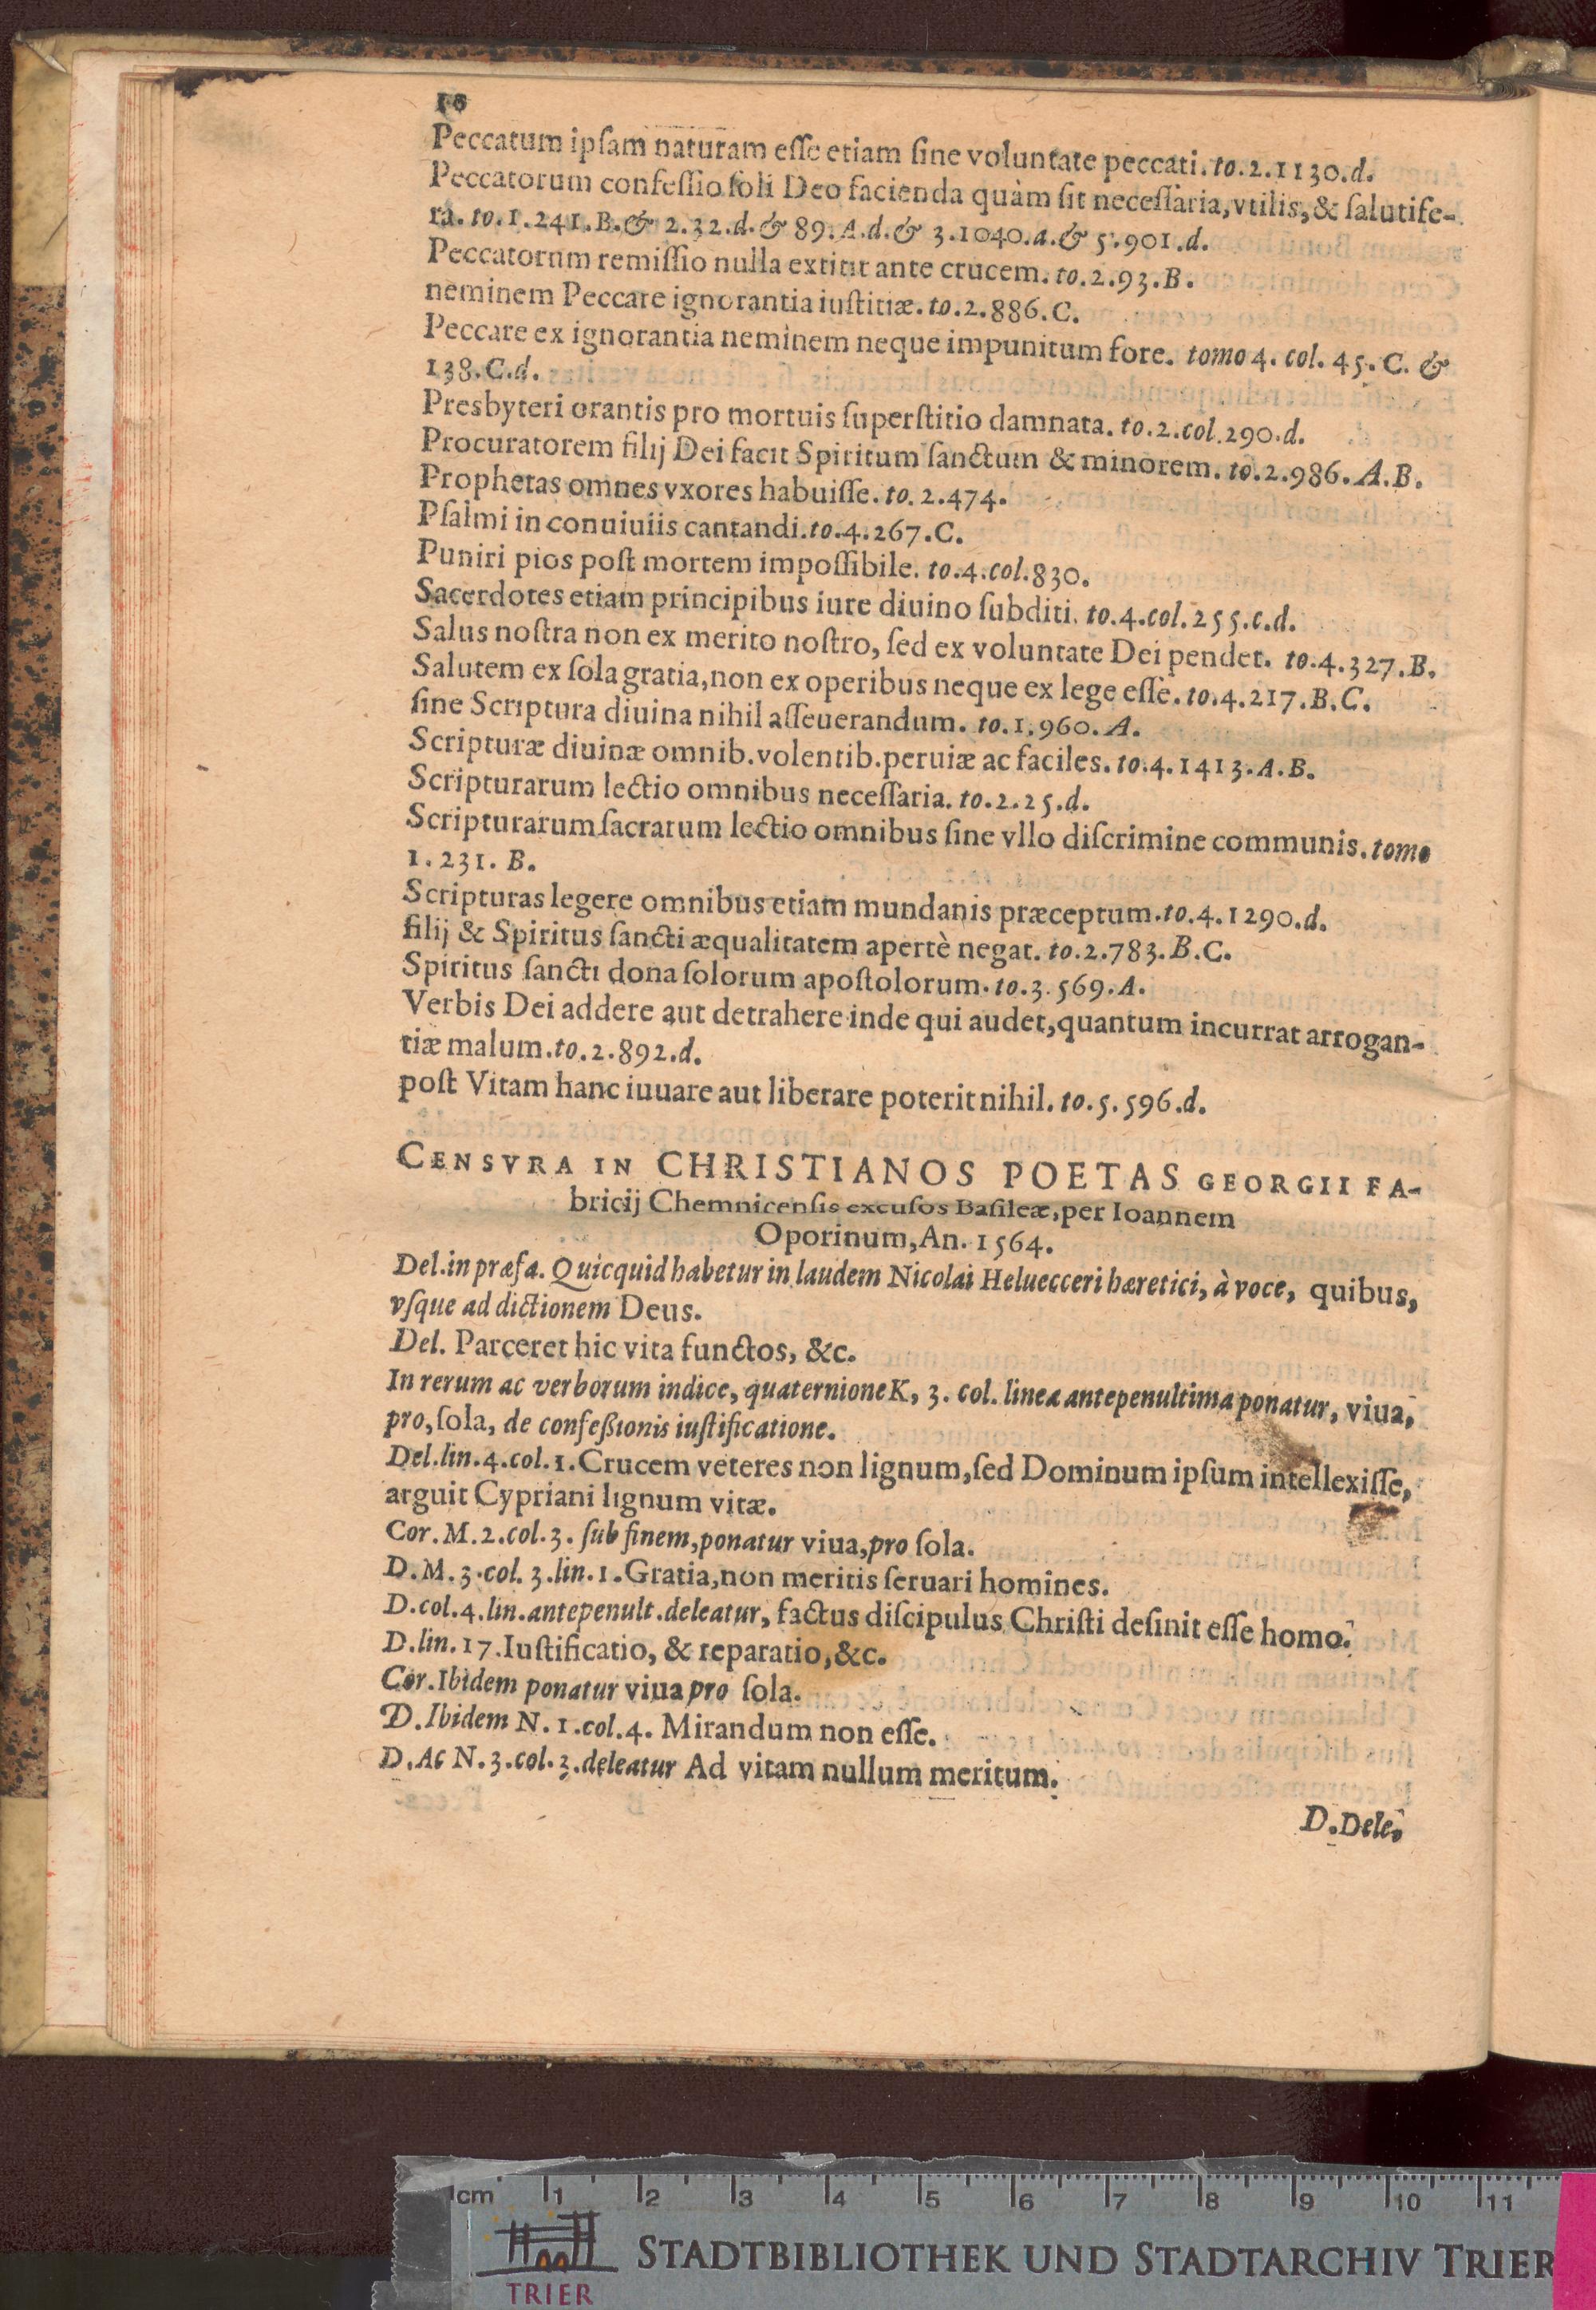 10
Peccatum ipſam naturam eſſe etiam ſine voluntate peccati. to.2.1130.d.
Peccatorum confeſſio ſoli Deo facienda quàm ſit neceſſaria, vtilis, & ſalutife-
ra. to.1.241.B.& 2.32.d.& 89.A.d.& 3.1040.a.& 5.901.d.
Peccatorum remiſſio nulla extitit ante crucem. to.2.93.B.
neminem Peccare ignorantia iuſtitiæ. to.2.886.C.
Peccare ex ignorantia neminem neque impunitum fore. tomo 4. col. 45. C. &
138.C.d.
Presbyteri orantis pro mortuis ſuperſtitio damnata. to.2.col.290.d.
Procuratorem filij Dei facit Spiritum ſanctum & minorem. to.2.986.A.B.
Prophetas omnes vxores habuiſſe. to. 2.474.
Pſalmi in conuiuiis cantandi. to.4.267.C.
Puniri pios poſt mortem impoſſibile. to.4.col.830.
Sacerdotes etiam principibus iure diuino ſubditi. to.4.col.255.c.d.
Salus noſtra non ex merito noſtro, ſed ex voluntate Dei pendet. to.4.327.B.
Salutem ex ſola gratia, non ex operibus neque ex lege eſſe. to.4.217.B.C.
ſine Scriptura diuina nihil aſſeuerandum. to.1.960.A.
Scripturæ diuinæ omnib. volentib. peruiæ ac faciles. to.4.1413.A.B.
Scripturarum lectio omnibus neceſſaria. to.2.25.d.
Scripturarum ſacrarum lectio omnibus ſine vllo diſcrimine communis. tomo
1.231. B.
Scripturas legere omnibus etiam mundanis præceptum. to.4.1290.d.
filij & Spiritus ſancti æqualitatem apertè negat. to.2.783.B.C.
Spiritus ſancti dona ſolorum apoſtolorum. to.3.569.A.
Verbis Dei addere aut detrahere inde qui audet, quantum incurrat arrogan-
tiæ malum. to.2.892.d.
poſt Vitam hanc iuuare aut liberare poterit nihil. to.5.596.d.
CENSVRA IN CHRISTIANOS POETAS GEORGII FA-
bricij Chemnicenſis excuſos Baſileæ, per Ioannem
Oporinum, An. 1564.
Del. in præfa. Quicquid habetur in laudem Nicolai Heluecceri hæretici, à voce, quibus,
vſque ad dictionem Deus.
Del. Parceret hic vita functos, &c.
In rerum ac verborum indice, quaternione K, 3. col. linea antepenultima ponatur, viua,
pro, ſola, de confeßionis iuſtificatione.
Del. lin.4.col.1. Crucem veteres non lignum, ſed Dominum ipſum intellexiſſe,
arguit Cypriani lignum vitæ.
Cor. M.2.col.3. ſub finem, ponatur viua, pro ſola.
D. M. 3.col. 3.lin.1. Gratia, non meritis ſeruari homines.
D. col.4.lin.antepenult. deleatur, factus diſcipulus Chriſti deſinit eſſe homo.
D. lin.17. Iuſtificatio, & reparatio, &c.
Cor. Ibidem ponatur viua pro ſola.
D. Ibidem N.1.col.4. Mirandum non eſſe.
D. Ac N.3.col.3. deleatur Ad vitam nullum meritum.
D. Dele,
cm 1 2 3 4 5 6 7 8 9 10 11
TRIER STADTBIBLIOTHEK UND STADTARCHIV TRIER